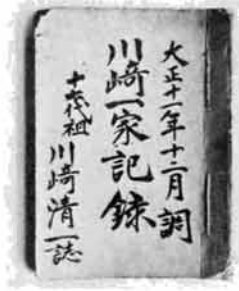 大正十一年十二月調
川崎一家記録
十六代祖
川崎清一誌